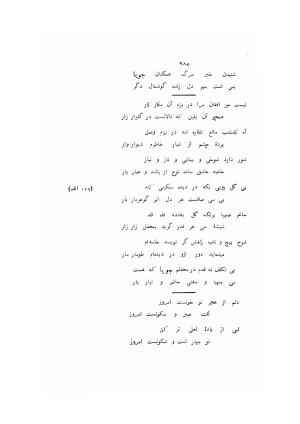 ۹۸۵
شنیدن خبر مرگ همگنان جویا
بس است بهر دل زنده گوشمال دگر
نیست جز افغان مرا در بزم آن مکار کار
همچو آن بلبل که نالانست در گلزار زار
آه کامشب مانع نظاره شد در بزم وصل
پردهٔ چشم از غبار خاطرم دیوار وار
شور دارد شوخی و بیتابی و ناز و نیاز
خاصه عاشق ساده لوح از یاشد و عیار یار
بی گل رویی نگه در دیده سنگینی کند
(۱۲۹ الف)
بی می صافست هر دل ابر گوهربار بار
ساغر صهبا برنگ گل بخندد قاه قاه
شیشهٔ می هر قدر گرید بمحفل زار زار
شرح پیچ و تاب زلفش گر نویسد خامه‌ام
میتماید دور ازو در دیده‌ام طومار مار
بی تکلف نه قدم در محفلم جویا که هست
می مهیا و مغنی حاضر و تیار یار
دلم از هجر تو خونست امروز
آفت صبر و سکونست امروز
لبی از بادهٔ لعلی تر کن
تو بهار است و شکونست امروز